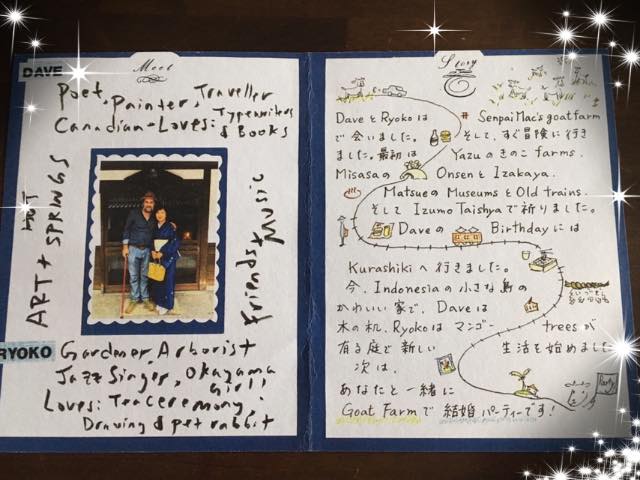 DAVE
Meet
Poet, Painter, Traveller
Canadian - Loves: Typewriters
& Books
ART + HOT SPRINGS
Friends + Music
RYOKO
Gardener, Arborist
Jazz Singer, Okayama
Girl!
Loves: Tea Ceremony,
Drawing & pet rabbit
Story
DaveとRyokoは Senpai Mac's goat farm
で会いました。そして、すぐ冒険に行き
ました。最初は Yazuのきのこ farms.
Misasaの OnsenとIzakaya.
MatsueのMuseumsとOld trains.
そして Izumo Taishyaで祈りました。
Daveの Birthdayには
Kurashikiへ行きました。
今、Indonesiaの小さな島の
かわいい家で、Daveは
木の机、Ryokoはマンゴー treesが
有る庭で新しい 生活を始めました
次は、
あなたと一緒に
Goat Farmで結婚パーティーです!
Party